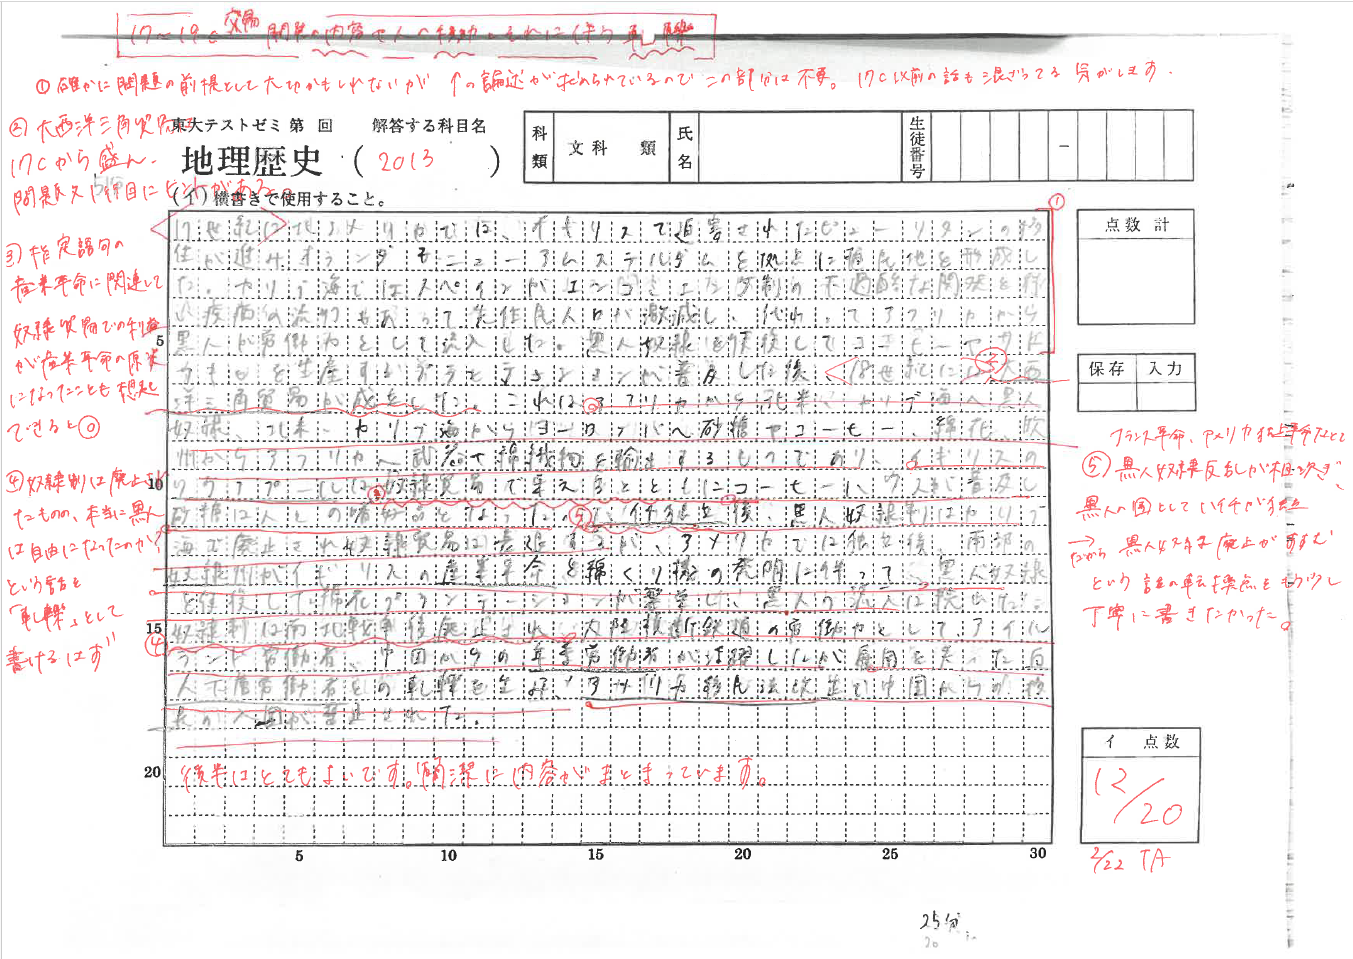 17〜19c 交易 開発の内容と人の移動、それに伴う軋轢
①確かに問題の前提として大切かもしれないが ↑の論述が求められているのでこの部分は不要。17C以前の話も混ざってる気がします。
②大西洋三角貿易は
17Cから盛ん。
問題文1行目にヒントがある。
③指定語句の
産業革命に関連して
奴隷貿易での利益
が産業革命の原資
になったことも想起
できると◎
④奴隷制は廃止され
たものの、本当に黒人
は自由になったのか?
という話を
「軋轢」として
書けるはず
東大テストゼミ 第 回 解答する科目名
地理歴史 ( 2013 )
科類
文科 類
氏名
生徒番号
−
(イ)横書きで使用すること。
①
17世紀に北アメリカでは、イギリスで迫害されたピューリタンの移
住が進みオランダもニューアムステルダムを拠点に植民地を形成し
た。カリブ海ではスペインがエンコミエンダ制の下過酷な開発を行
い疾病の流行もあって先住民人口が激減し、代わってアフリカから
黒人が労働力として流入した。黒人奴隷を使役してコーヒーやサト
ウキビを生産するプランテーションが普及した後、18世紀には大西
洋三角貿易が成立した。これはアフリカから北米やカリブ海へ黒人
奴隷、北米・カリブ海からヨーロッパへ砂糖やコーヒー、綿花、欧
州からアフリカへ武器や綿織物を輸送するものであり、イギリスの
リヴァプールは奴隷貿易で栄えるとともにコーヒーハウスが普及し
砂糖は人々の嗜好品となった。ハイチ独立後、黒人奴隷制はカリブ
海で廃止され奴隷貿易は衰退するが、アメリカでは独立後、南部の
奴隷州がイギリスの産業革命と綿繰り機の発明に伴って、黒人奴隷
を使役した綿花プランテーションが繁栄し、黒人の流入は続いた。
奴隷制は南北戦争後廃止され、大陸横断鉄道の労働力としてアイル
ランド労働者、中国からの苦力労働者が活躍したが雇用を失った白
人下層労働者との軋轢を生み、アメリカ移民法改正で中国からの移
民の入国が禁止された。
後半はとてもよいです。簡潔に内容がまとまっています。
5
10
15
20
5 10 15 20 25 30
点数計
保存 入力
フランス革命、アメリカ独立革命などで
⑤黒人奴隷反乱が相次ぎ、
黒人の国としてハイチが独立
→ 黒人奴隷廃止がすすむ
ながら
という話の転換点をもう少し
丁寧に書きたかった。
イ 点数
12/20
2/22 TA
25分